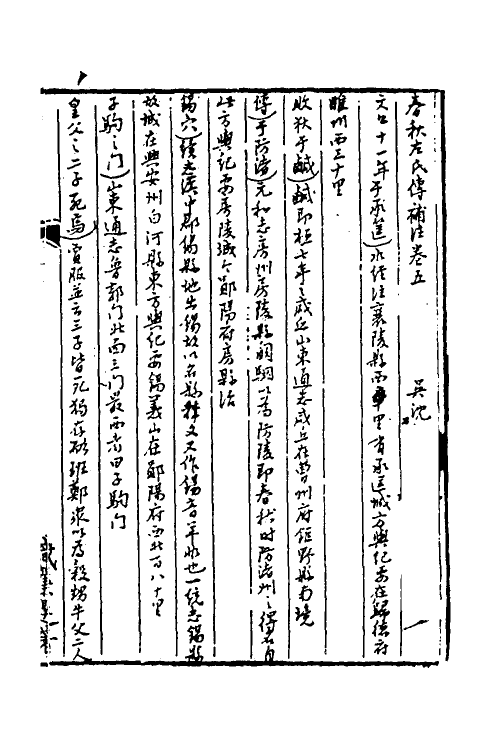 春秋左氏傳補注卷五　　　吳沈
文公十一年于承筐）水經注襄陵縣西　里有承匡城方輿紀要在歸德府
睢州西三十里
敗狄于鹹）鹹即桓七年之咸丘山東通志咸丘在曹州府鉅野縣南境
傳于防渚）元和志房州房陵縣闞駰以為防陵即春秋時防渚州之得名自
此方輿記要房陵城今鄖陽府房縣治
錫穴）續志漢中郡錫縣地出錫故以名縣釋文又作錫音羊非也一統志錫縣
故城在興安州白河縣東方輿紀要錫義山在鄖陽府西北百八十里
子駒之門）山東通志魯郭門北面三門最西者曰子駒門
皇父之二子死焉）賈服並云三子皆死獨存耏班鄭眾以為穀甥牛父二人